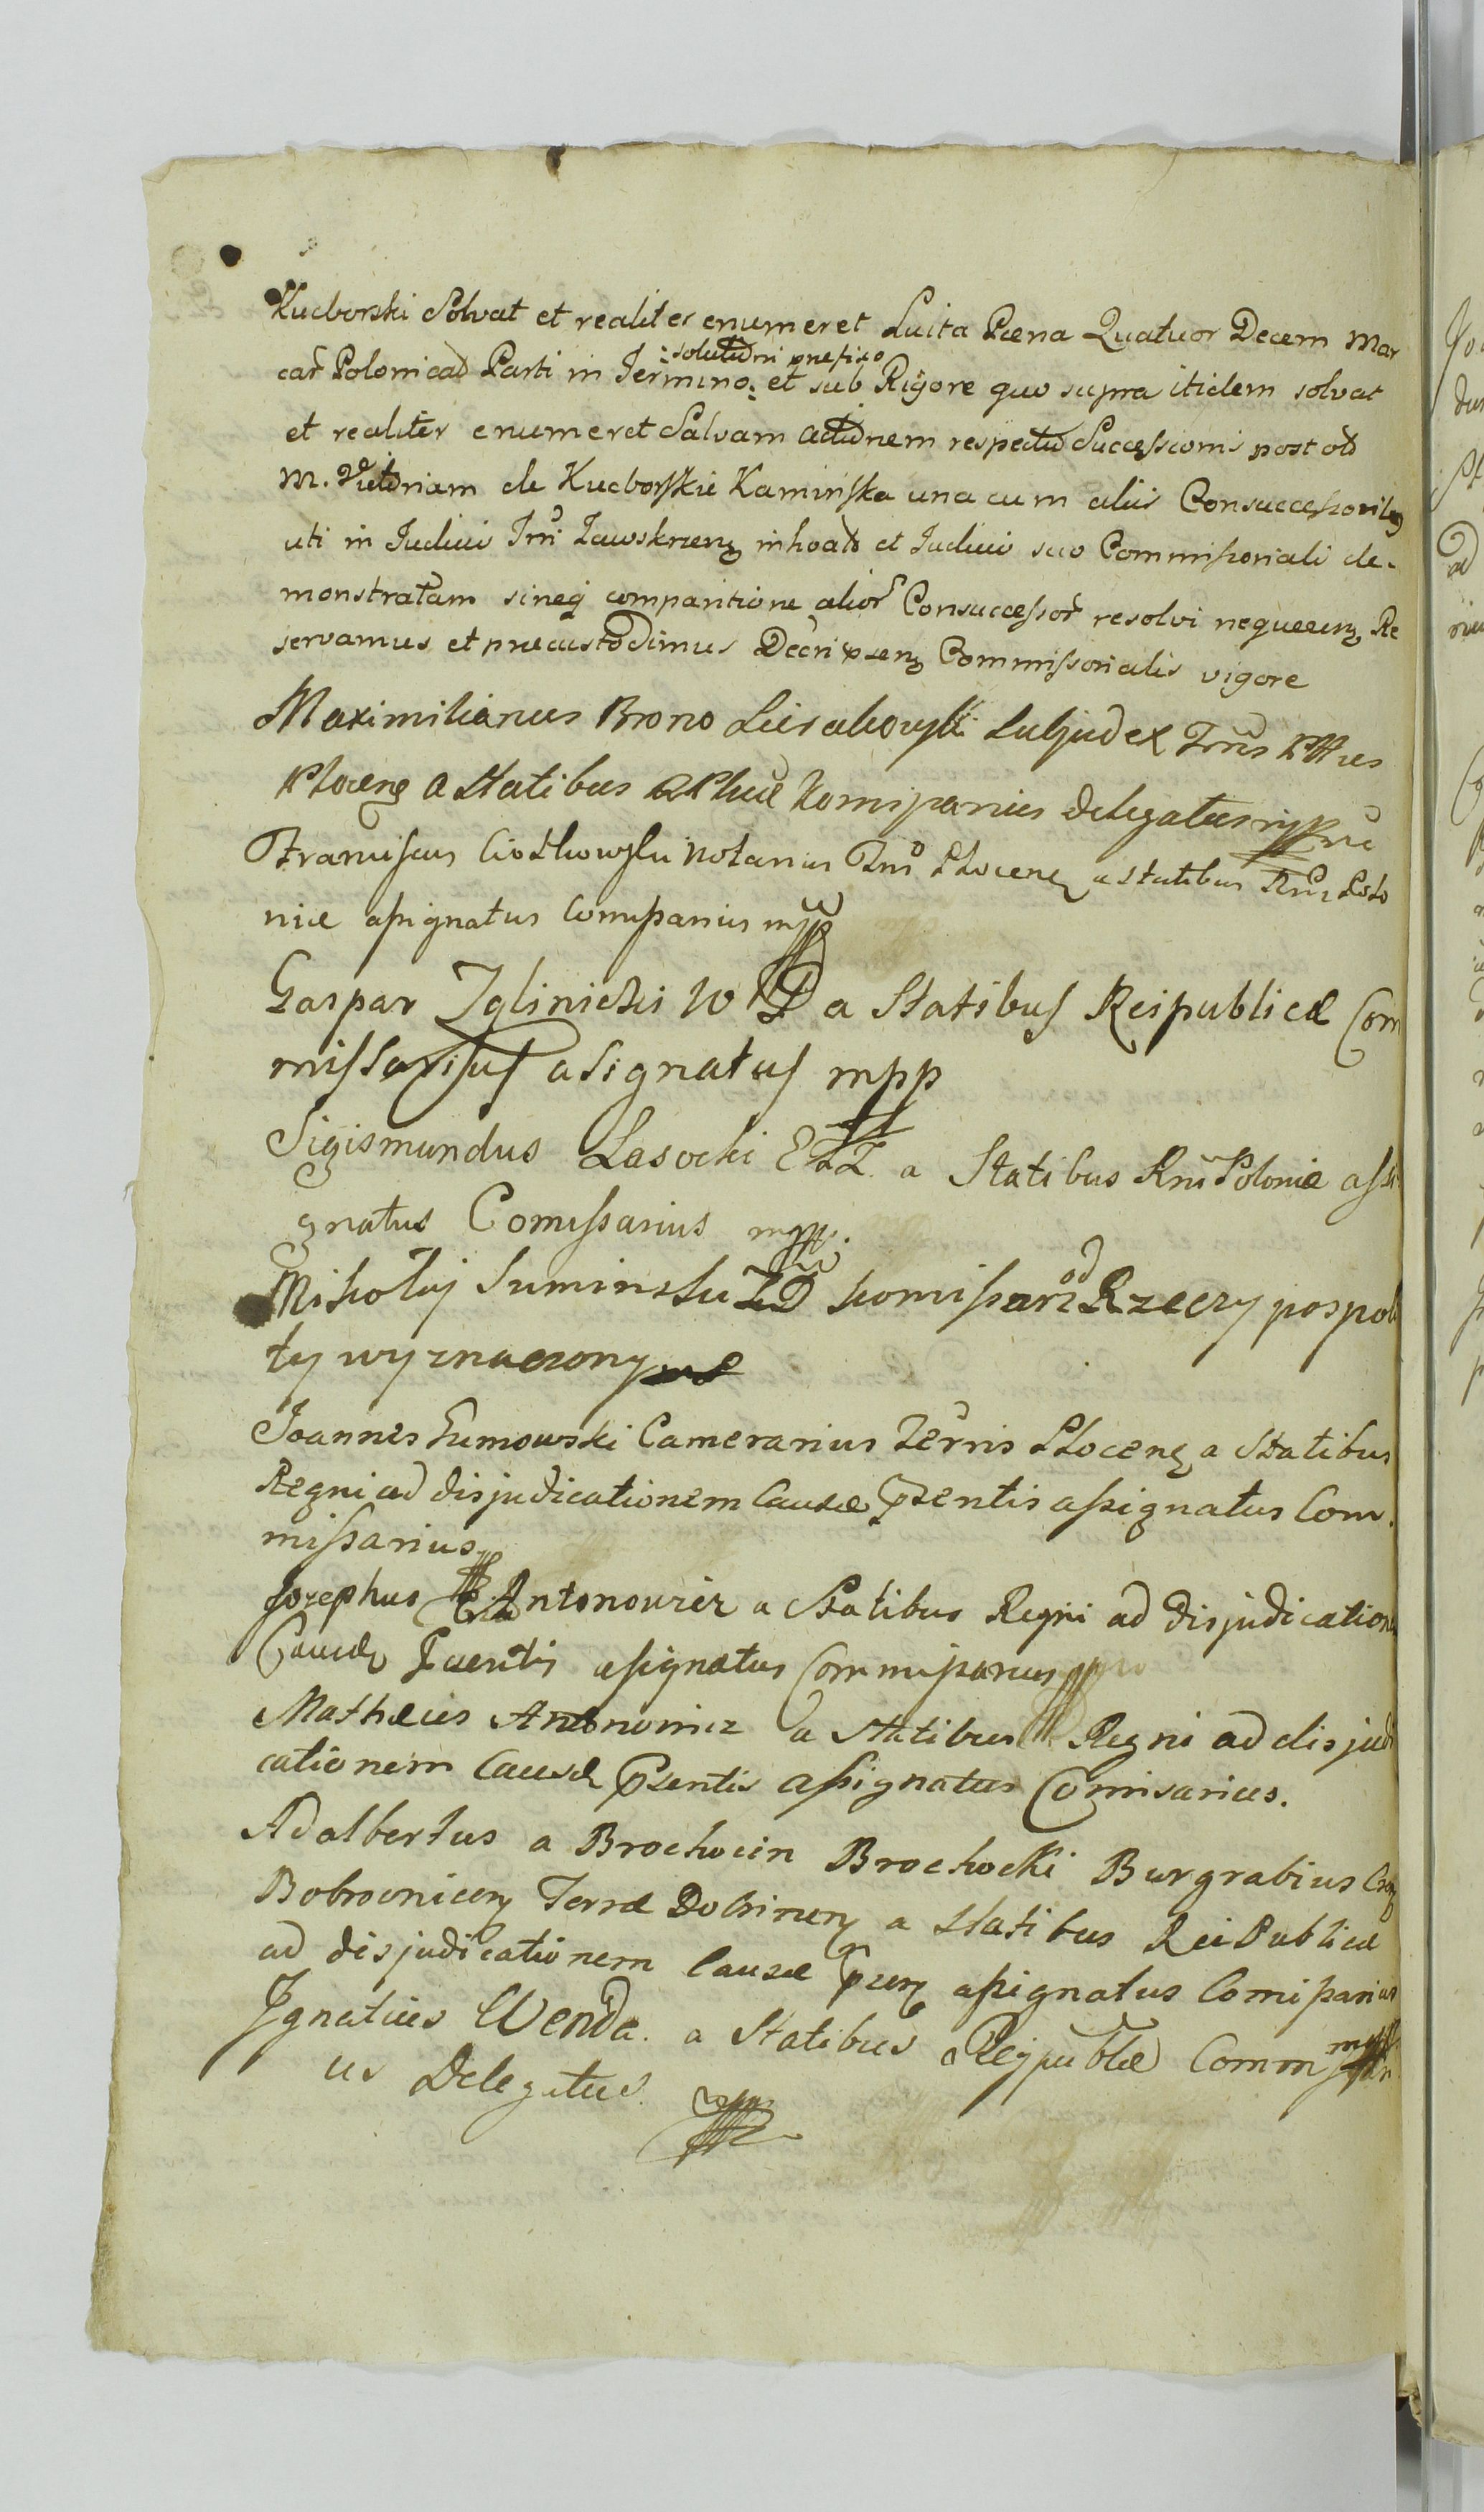 Kucborski Solvat et realiter enumeret Luita Pæna Quatuor Decem Mar
car Polonicad Parti in Termino : solutioni prefixo : et sub Rigore quo supra itidem solvat
et realiter enumeret Salvam actionem respectu Successionis post od
M. Victoriam de Kucborskie Kamińska una cum aliis Consuccessoribg
uti in Judicio Trri Zawskrzeng inhoato et Judicio suo Commissoriali de-
monstratam sineq comparitione alior Consuccessor resolvi nequeeung Re
servamus et præcustodimus Decri pseng Commissorialis vigore
Maximilianus Bromo Subjudex Trris
Plocens a Statibus Komissarius Delegatus mpp
Franciscus Ciółkowski Notarius Trris Plocens a Statibus Rni Polo
niæ assignatus Comissarius mpp
Gaspar Iglinicki W P a Statibus Reipublicæ Com
missarius asignatus mpp
Sigismundus Lasocki a Statibus Rni Poloniæ assi
gnatus Comissarius mpp.
Mikołaj Suminski ZD komissarz od Rzeczy pospoli
ty wyznaczony
Joannes Zumowski Camerarius Terris Plocens a Statibus
Regni ad disjudicationem Causæ Psentis assignatus Com.
missarius
Josephus Antonowicz a Statibus Regni ad disjudicatione
Causæ Psentis assignatus Commissarius
Mathæus Antonowicz a Statibus Regni ad disjudi
cationem Causæ Psentis assignatus Comisarius.
Adalbertus a Brochocin Brochocki Burgrabius
Bobrowniceng Terræ Dobrineng a Statibus Rei Publicæ
ad disjudicationem Causæ pseng assignatus Comissarius
Ignatius Wenda a Statibus Reipublæ Commissari
us Delegatus mpp